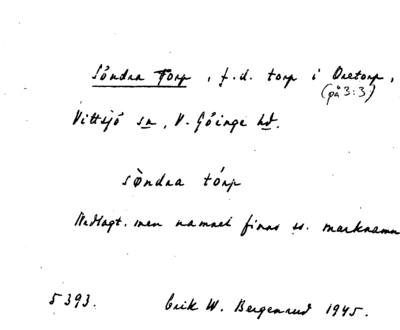 Söndra Torp, f.d. torp i Oretorp,
(på 3:3)
Vittsjö sn, V. Göinge hd.
sø̀ndra tórp
Nedlagt. men namnet finns ss. marknamn
5393. Erik W. Bergenrud 1945.